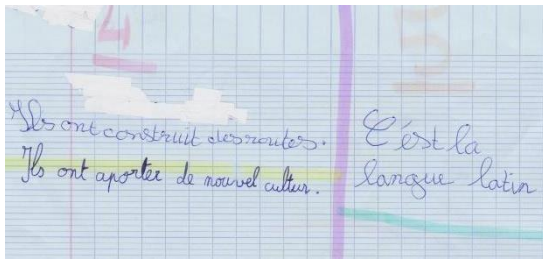 Ils ont construit des routes.
Ils ont aporter de nouvel cultur.
C'est la
langue latin